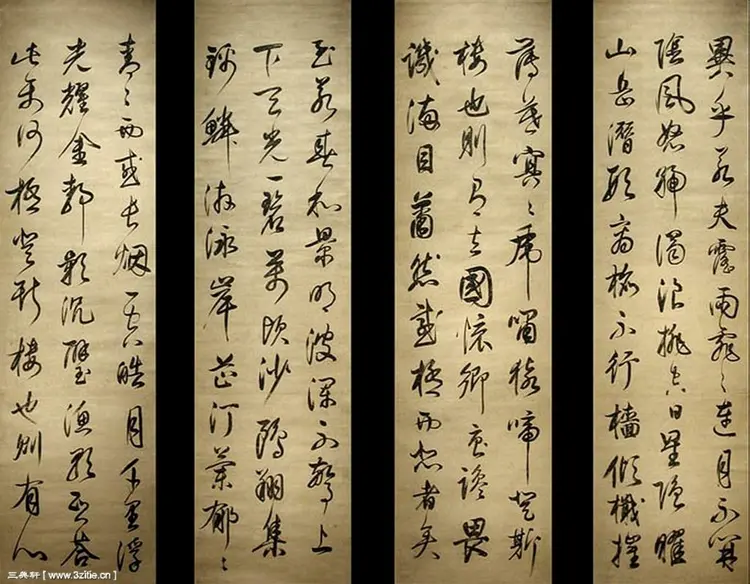 異乎若夫霪雨霏〻連月不開
陰風怒號濁浪排空日星隐曜
山岳潛形商旅不行檣傾檝摧
薄暮冥〻虎嘯猿啼登斯
樓也則有去國懷鄉憂讒畏
譏滿目蕭然感極而悲者矣
至若春和景明波瀾不驚上
下天光一碧萬頃沙鷗翔集
錦鱗游泳岸芷汀蘭郁〻
青〻而或長烟一空皓月千里浮
光耀金静影沉璧漁歌互答
此樂何極登斯樓也則有心
三典轩 [ www.3zitie.cn ]